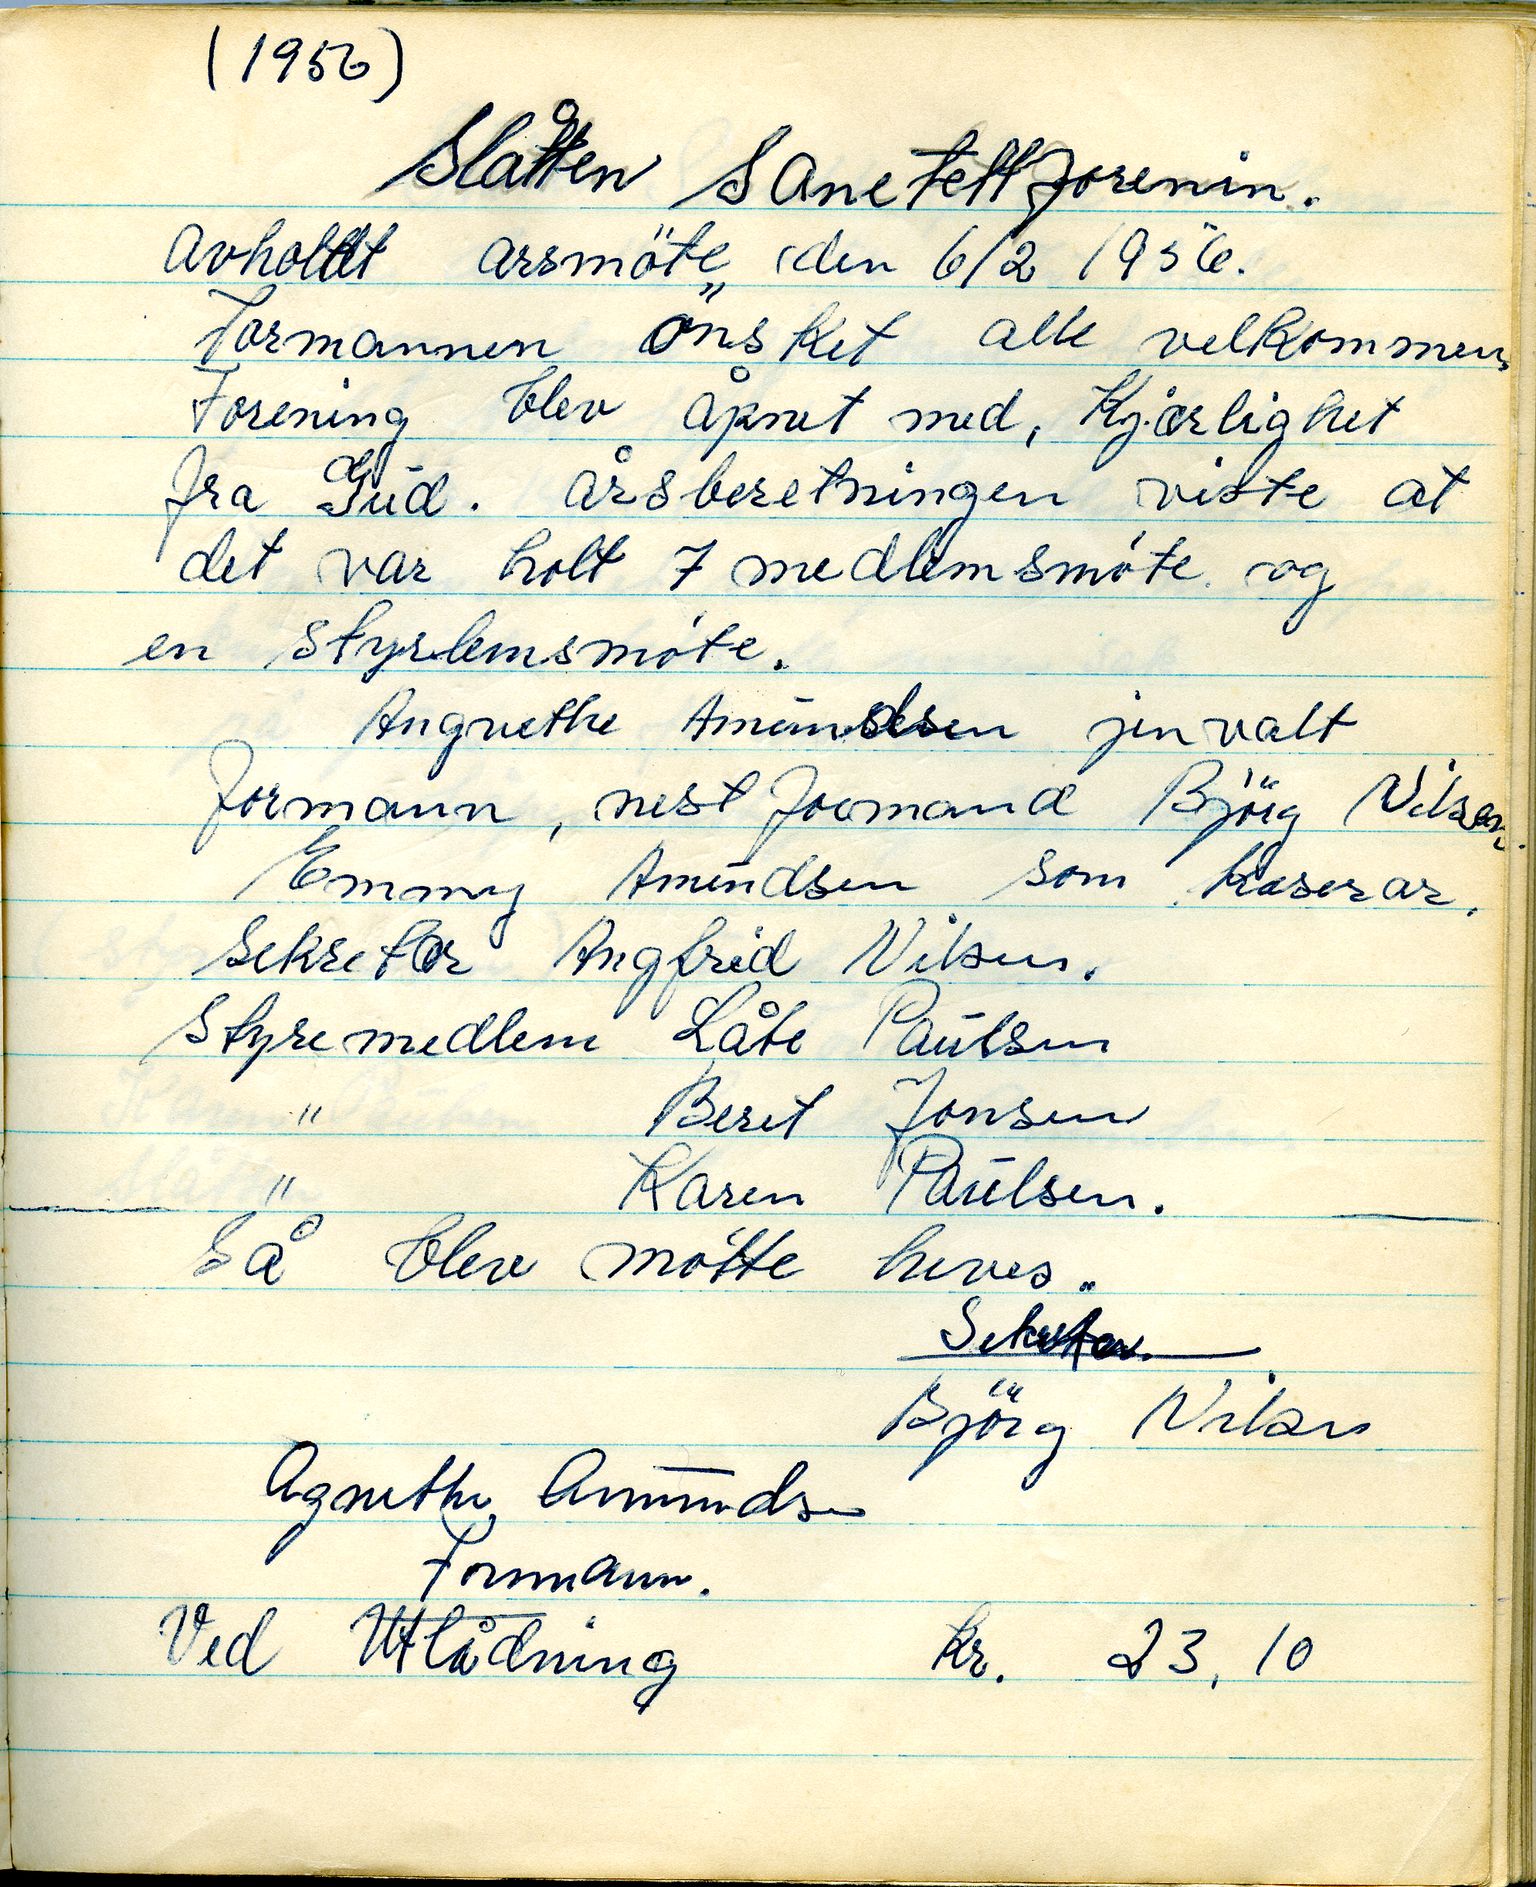 (1956)
Slåtten Sanetettforenin.
Avholdt arsmöte den 6/2 1956.
Formannen önsket alle velkommen,
Forening blev åpnet med, Kjærlighet
fra Gud. årsberetningen viste at
det var holt 7 medlemsmöte og
en Styrlemsmöte.
Angnethe Amundsen jenvalt
formann, nestformand Björg Nilsen,
Emmy Amundsen som kaserar.
Sekretær Angfrid Nilsen.
Styremedlem Låte Paulsen
" Beret Jonsen
" Karen Paulsen.
Så blev mötte heves.
Sekretær.
Björg Nilsen
Agnethe Amundsen
Formann.
Ved Utlådning kr. 23,10